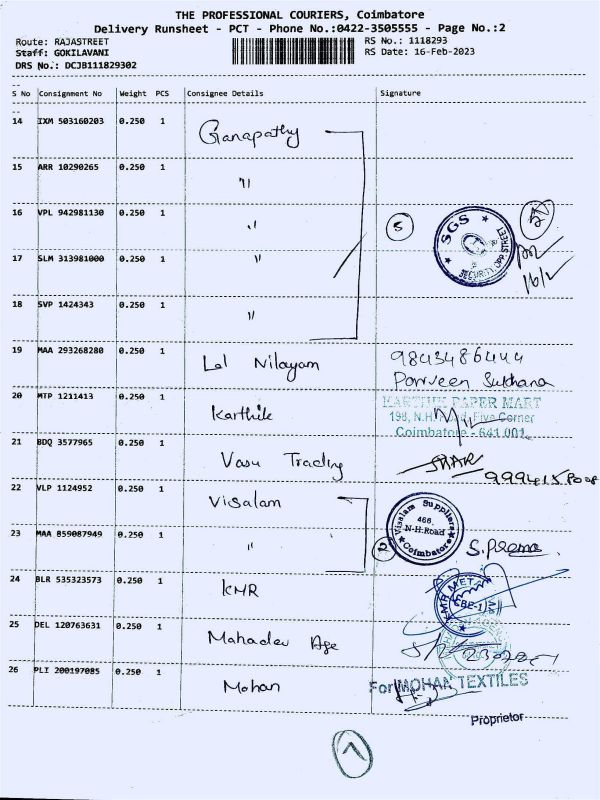 THE PROFESSIONAL COURIERS, Coimbatore
Delivery Runsheet - PCT - Phone No.:0422-3505555 - Page No.:2
Route: RAJASTREET RS No.: 1118293
Staff: GOKILAVANI RS Date: 16-Feb-2023
DRS No.: DCJB111829302
S No Consignment No Weight PCS Consignee Details Signature
14 IXM 503160203 0.250 1 Ganapathy
15 ARR 10290265 0.250 1 "
16 VPL 942981130 0.250 1 " 5 SGS SECURITY, OPP STREET
17 SLM 313981000 0.250 1 " 16/2
18 SVP 1424343 0.250 1 "
19 MAA 293268280 0.250 1 Lal Nilayam 9843486444
Parveen Sulthana
20 MTP 1211413 0.250 1 Karthik KARTHIK PAPER MART
198, N.H. Road, Five Corner
Coimbatore - 641 001.
21 BDQ 3577965 0.250 1 Vasu Trading
22 VLP 1124952 0.250 1 Visalam Visalam Suppliers
466, N-H.Road Coimbatore
23 MAA 859087949 0.250 1 " 2 S.Prema.
24 BLR 535323573 0.250 1 KMR KMR MET CBE-1
25 DEL 120763631 0.250 1 Mahadev Age
26 PLI 200197085 0.250 1 Mohan For MOHAN TEXTILES
Proprietor